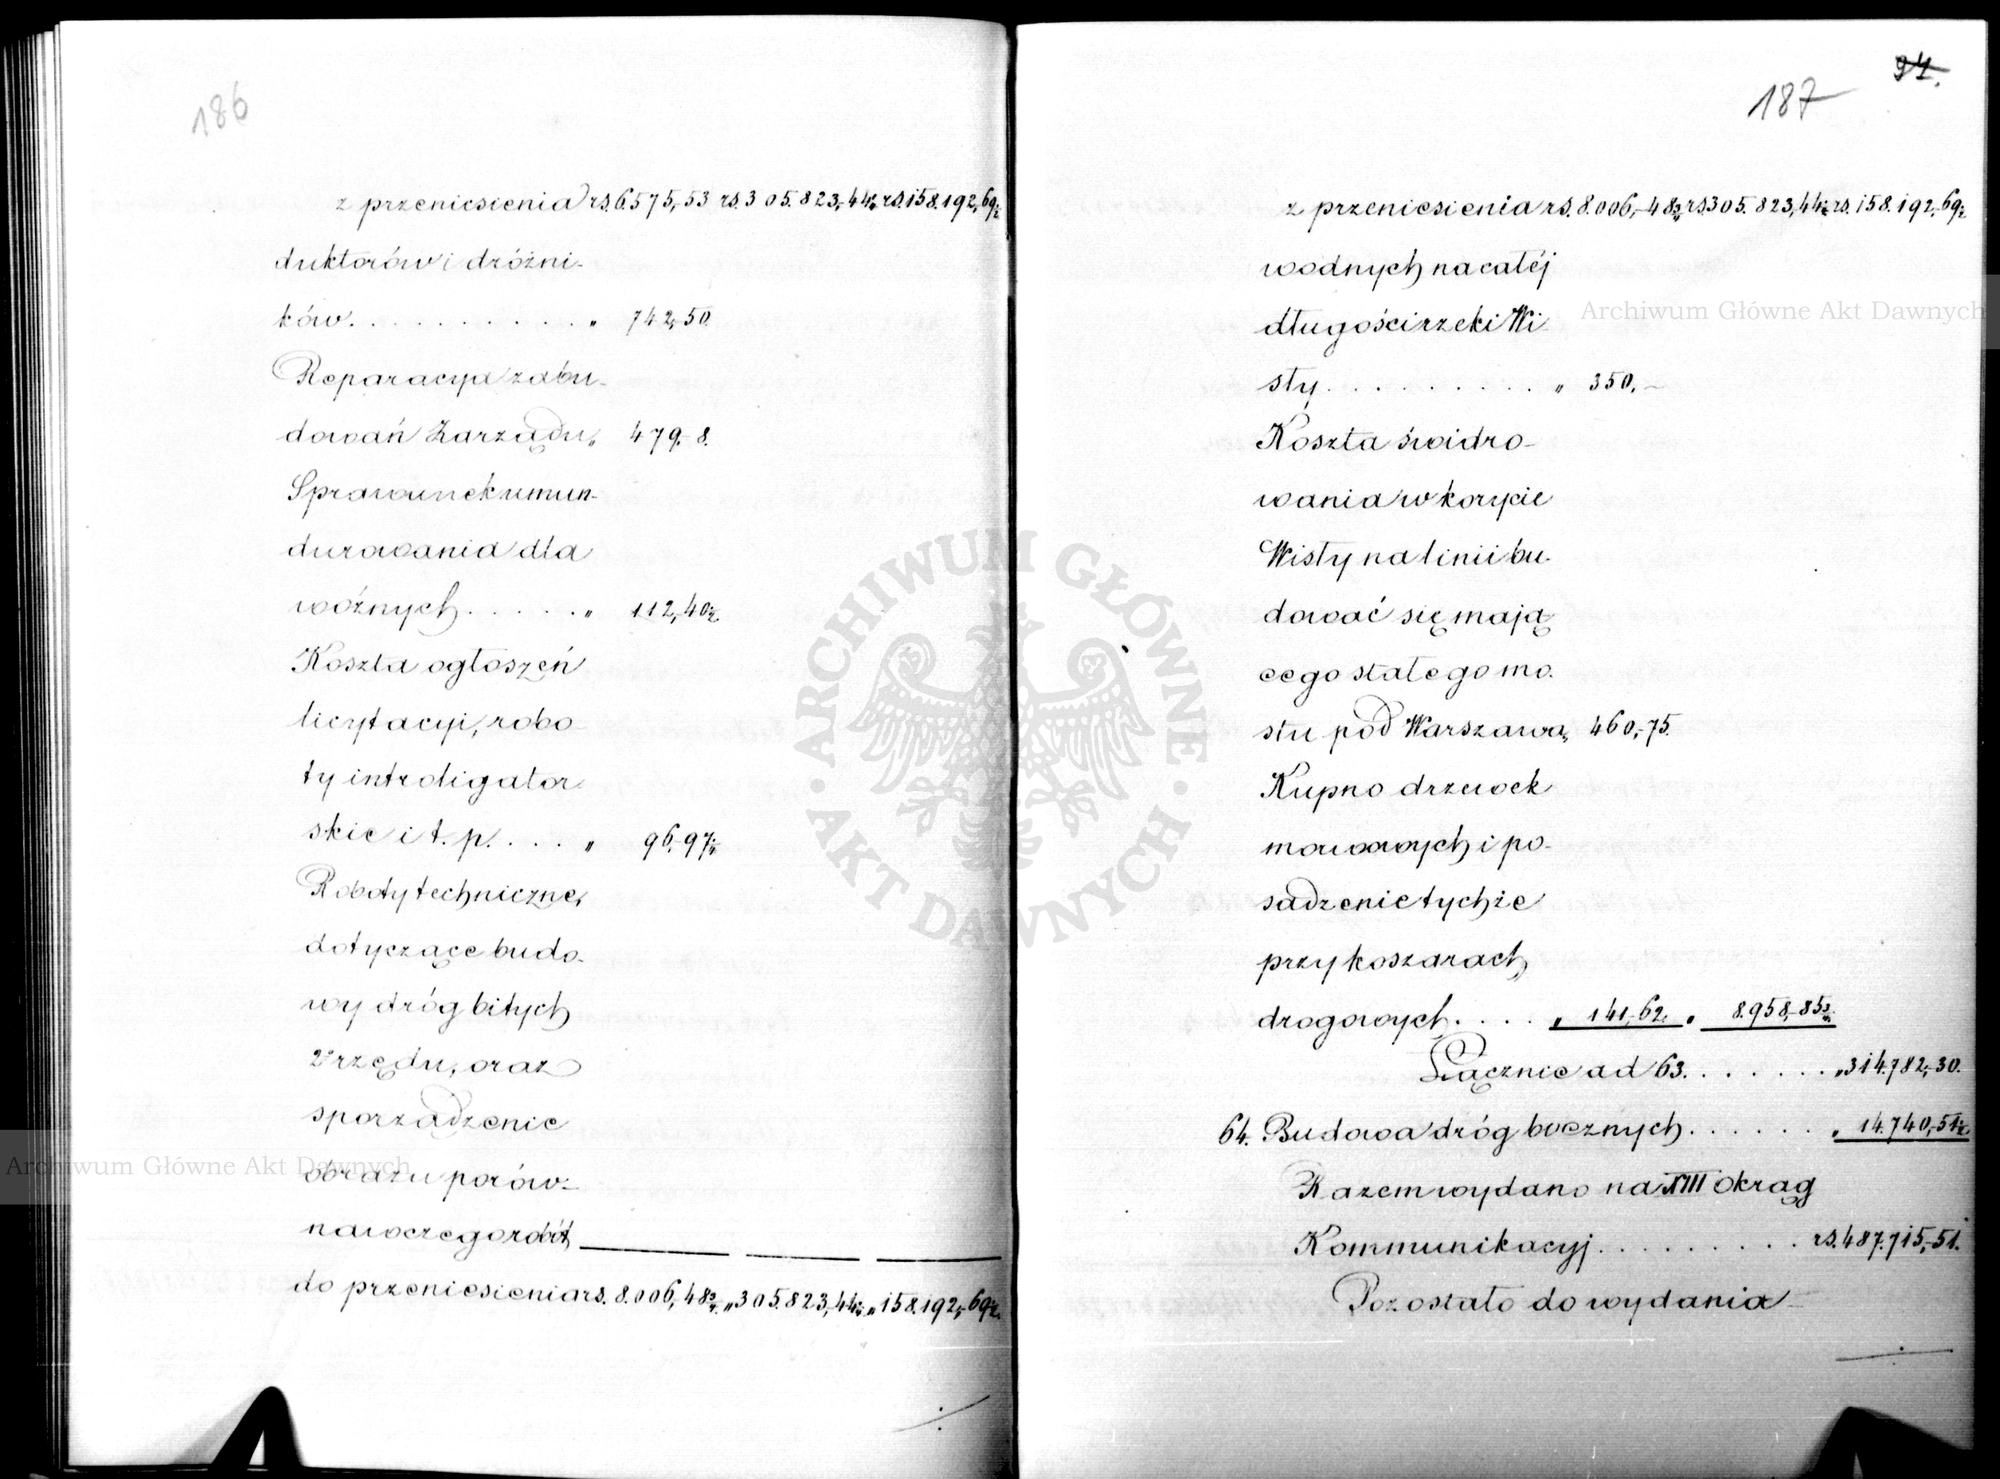 186
z przeniesienia rs. 6575,-53 rs. 305.823,-44¼ rs. 158.192,-69½
duktorów i dróżni-
ków. . . . . . . . . . . . „ 742,-50.
Reparacya zabu-
dowań Zarządu „ 479,-8.
Sprawunek umun-
durowania dla
woźnych . . . . . „ 112,-40½
Koszta ogłoszeń
licytacyi, robo-
ty introligator-
skie i t. p. . . . . „ 96,-97¼
Roboty techniczne,
dotyczące budo-
wy dróg bitych
2º rzędu, oraz
sporządzenie
obrazu porów-
nawczego robót
do przeniesienia rs. 8.006,-48¾ „ 305.823,-44¼ „ 158.192,-69½
94.
187
z przeniesienia rs. 8.006,-48¾ rs. 305.823,44¼ rs. 158.192,-69½
wodnych na całéj
długości rzeki Wi-
sły . . . . . . . . . . „ 350,-
Koszta świdro-
wania w korycie
Wisły na linii bu-
dować się mają-
cego stałego mo-
stu pod Warszawą „ 460,-75.
Kupno drzewek
morwowych i po-
sadzenie tychże
przy koszarach
drogowych . . . . „ 141,-62. „ 8.958,-85¾
Łącznie ad 63. . . . . . . „ 314.782,-30.
64. Budowa dróg bocznych . . . . . . „ 14.740,-51½
Razem wydano na XIII Okrąg
Kommunikacyj . . . . . . . . . rs. 487.715,-51.
Pozostało do wydania
Archiwum Główne Akt Dawnych
Archiwum Główne Akt Dawnych
ARCHIWUM GŁÓWNE · AKT DAWNYCH ·